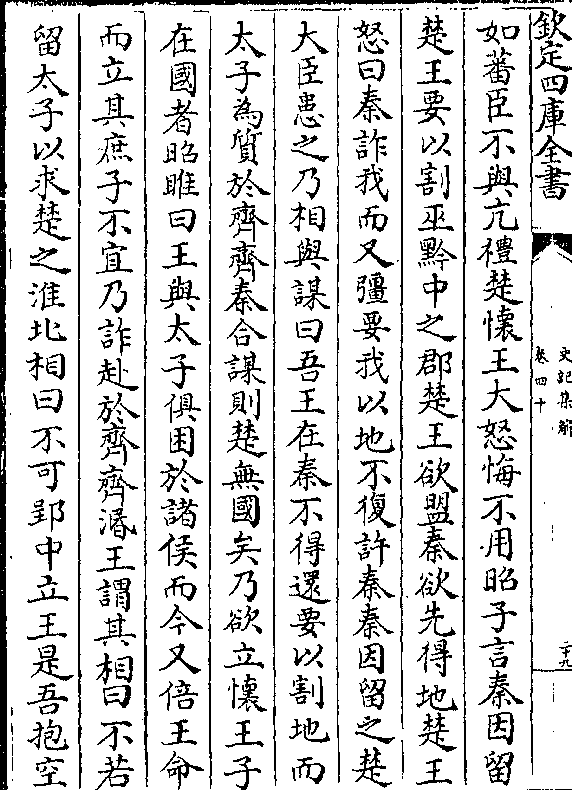 欽定四庫全書
史記集解
卷四十
二十九
如蕃臣不與亢禮楚懷王大怒悔不用昭子言秦因留
楚王要以割巫黔中之郡楚王欲盟秦欲先得地楚王
怒曰秦詐我而又彊要我以地不復許秦秦因留之楚
大臣患之乃相與謀曰吾王在秦不得還要以割地而
太子為質於齊齊秦合謀則楚無國矣乃欲立懷王子
在國者昭睢曰王與太子俱困於諸侯而今又倍王命
而立其庶子不宜乃詐赴於齊齊湣王謂其相曰不若
留太子以求楚之淮北相曰不可郢中立王是吾抱空